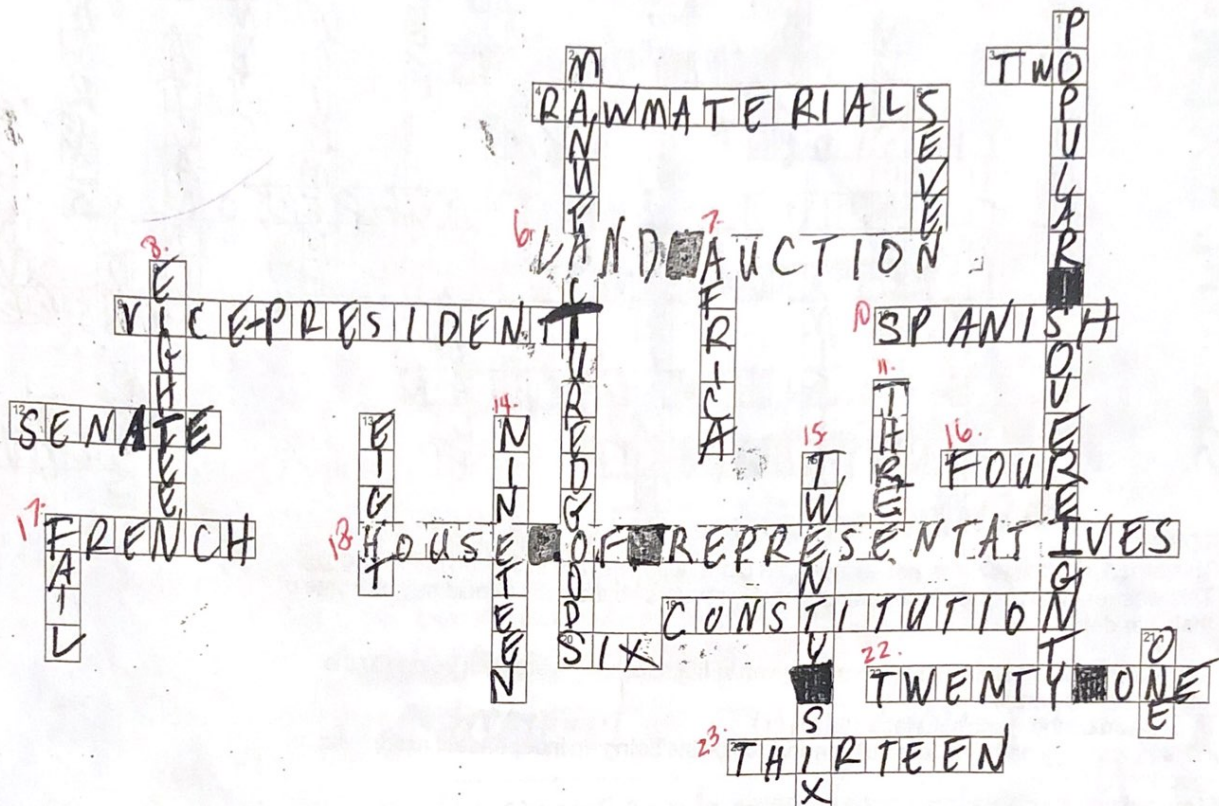 1 POPULAR SOVEREIGNTY
2 MANUFACTUREDGOODS
3 TWO
4 RAWMATERIALS
5 SEVEN
6. LAND AUCTION
7. AFRICA
8. EIGHTEEN
9 VICE-PRESIDENT
10 SPANISH
11. THREE
12 SENATE
13 EIGHT
14. NINETEEN
15. TWENTY SIX
16. FOUR
17. FRENCH
FAIL
18. HOUSE OF REPRESENTATIVES
19 CONSTITUTION
20 SIX
21 ONE
22. TWENTY ONE
23 THIRTEEN